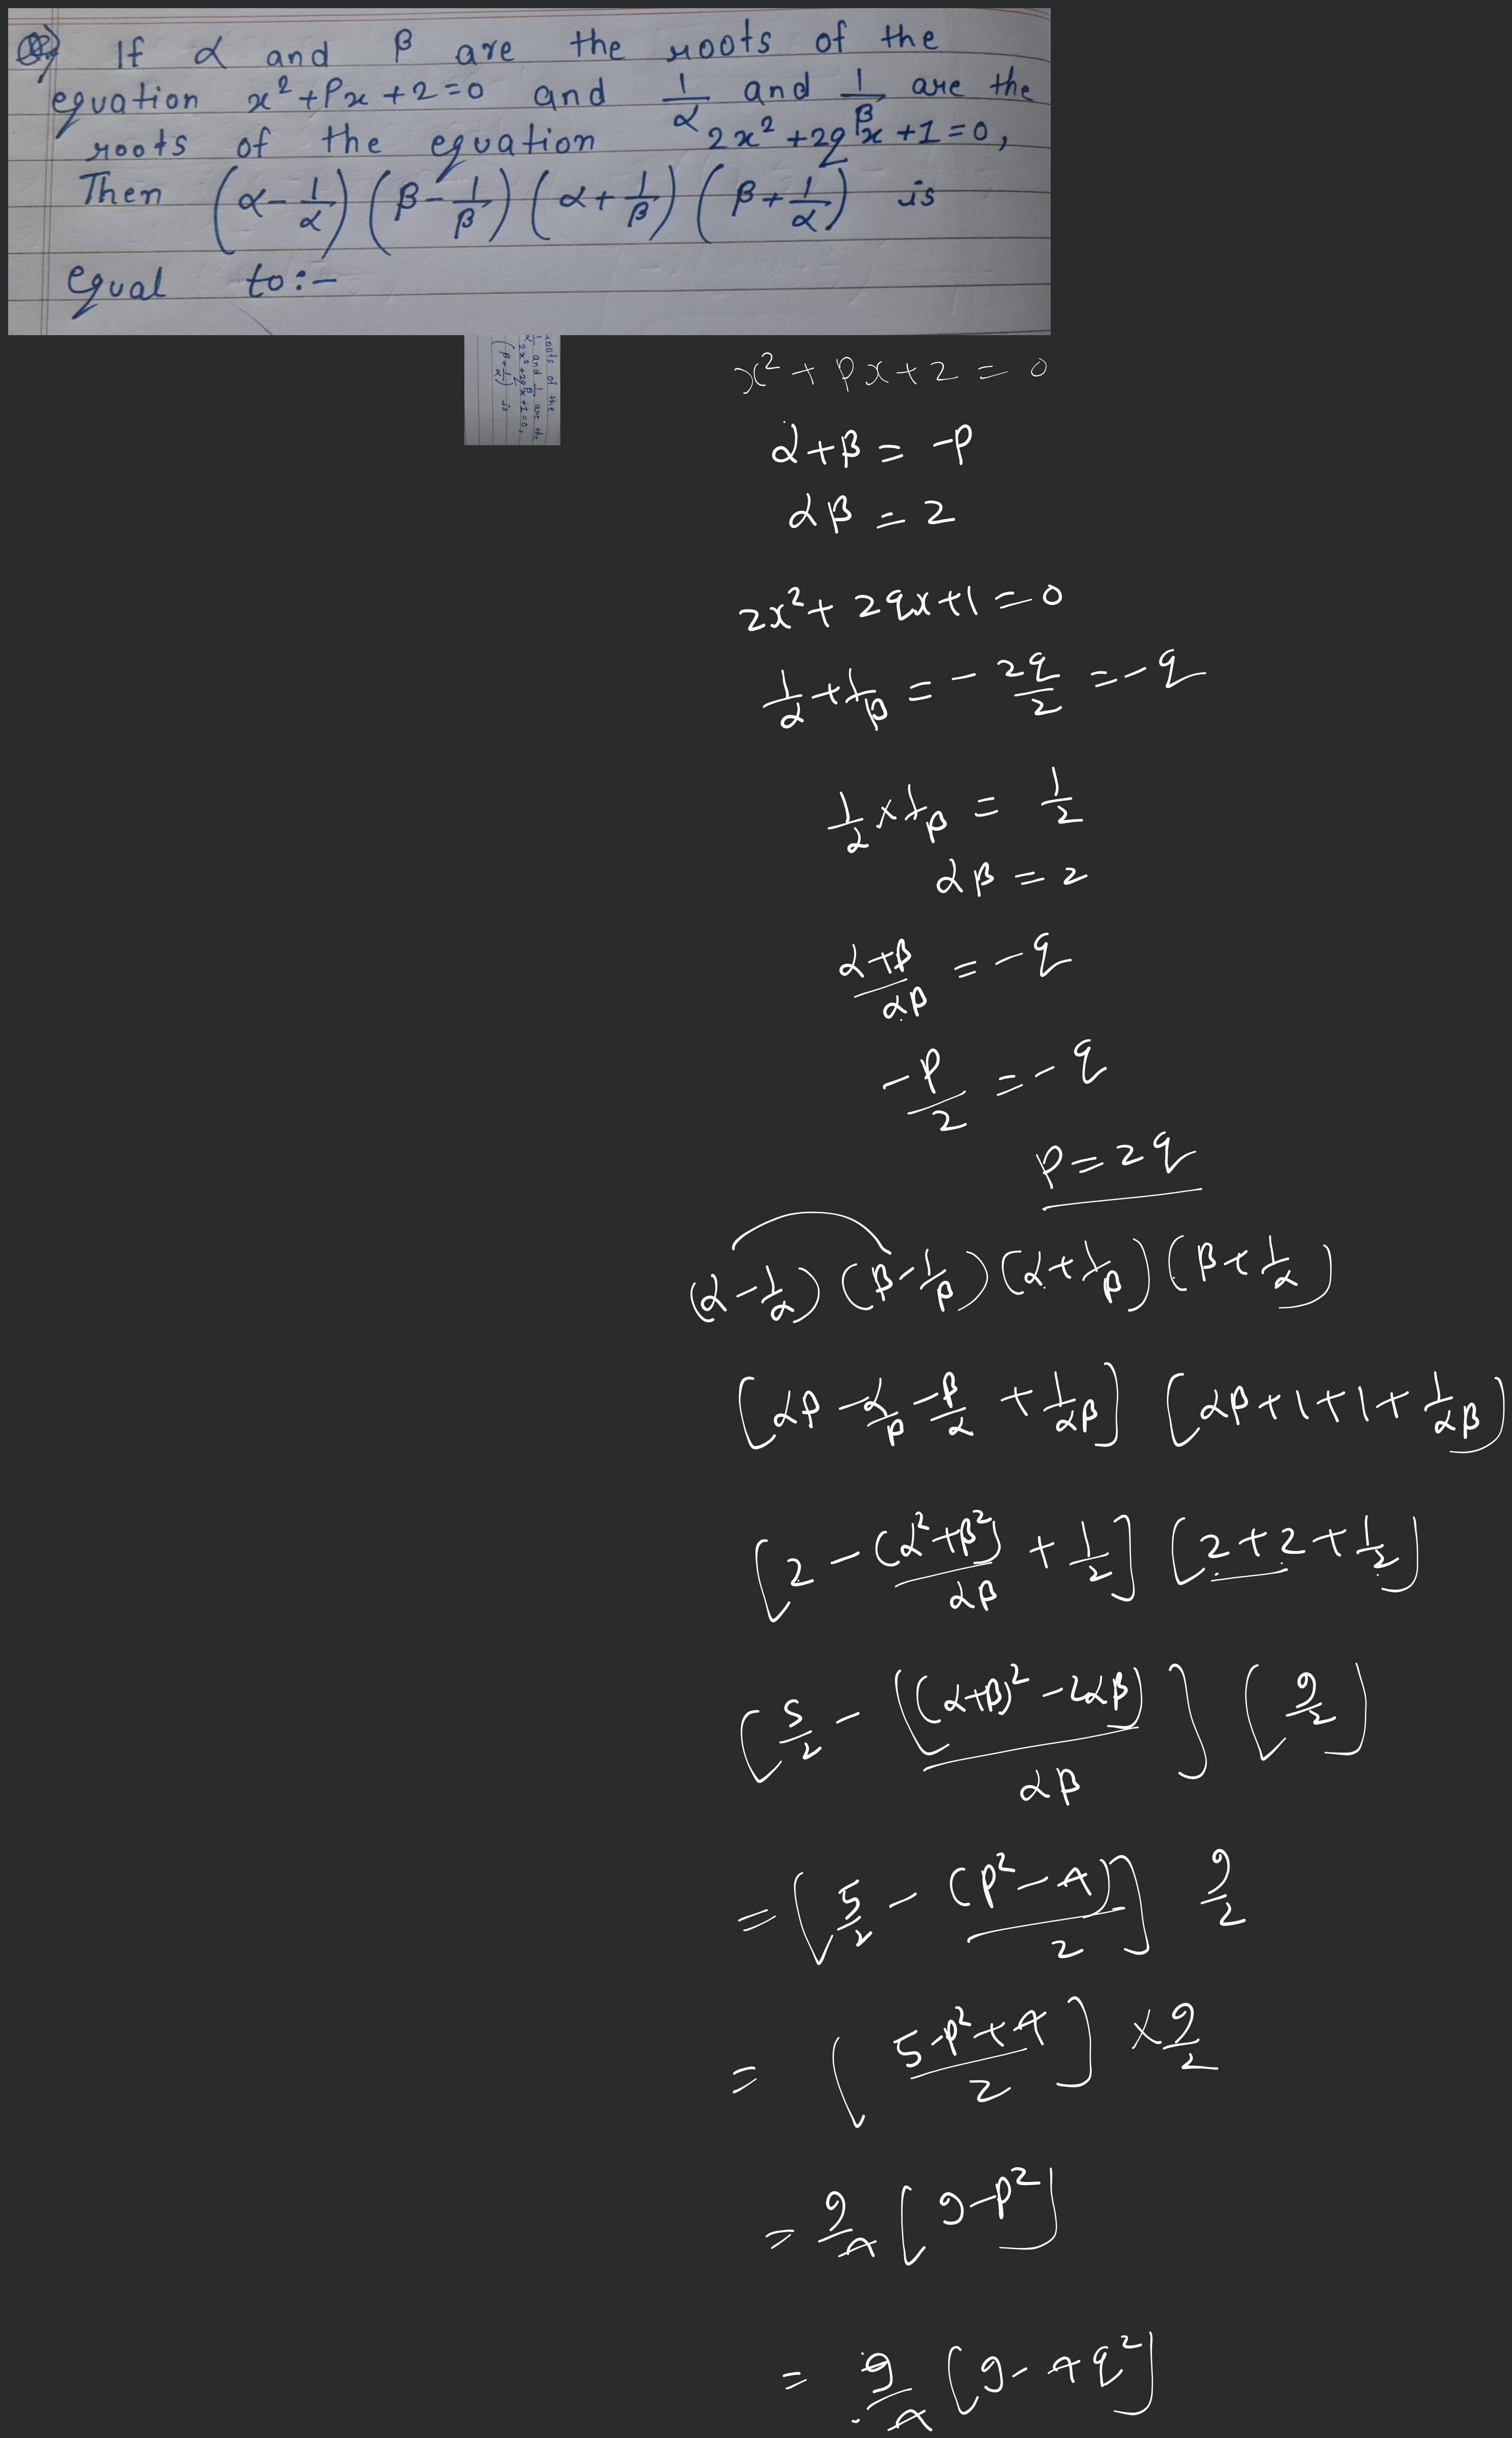 Q) If α and β are the roots of the
equation x² + Px + 2 = 0 and 1/α and 1/β are the
roots of the equation 2x² + 2qx + 1 = 0,
Then (α - 1/α) (β - 1/β) (α + 1/β) (β + 1/α) is
equal to:-
roots of the
1/α and 1/β are the
2x² + 2qx + 1 = 0,
(β + 1/α) is
x² + Px + 2 = 0
α + β = -P
αβ = 2
2x² + 2qx + 1 = 0
1/α + 1/β = - 2q/2 = -q
1/α × 1/β = 1/2
αβ = 2
(α + β)/αβ = -q
-P/2 = -q
P = 2q
(α - 1/α) (β - 1/β) (α + 1/β) (β + 1/α)
[αβ - α/β - β/α + 1/αβ] [αβ + 1 + 1 + 1/αβ]
[2 - (α² + β²)/αβ + 1/2] [2 + 2 + 1/2]
[5/2 - [(α+β)² - 2αβ]/αβ] [9/2]
= [5/2 - (P² - 4)/2] 9/2
= [(5 - P² + 4)/2] × 9/2
= 9/4 [9 - P²]
= 9/4 [9 - 4q²]